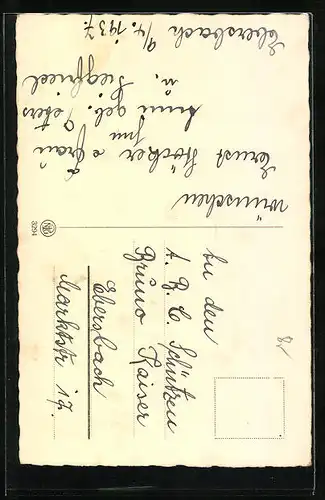 wünschen
Ernst Höcker u. Frau
Anni geb. Peters
u. Siegfried
Ebersbach 9/4. 1937.
3294
An den
A. R. C. Schützen
Bruno Kaiser
Ebersbach
Marktstr. 17.